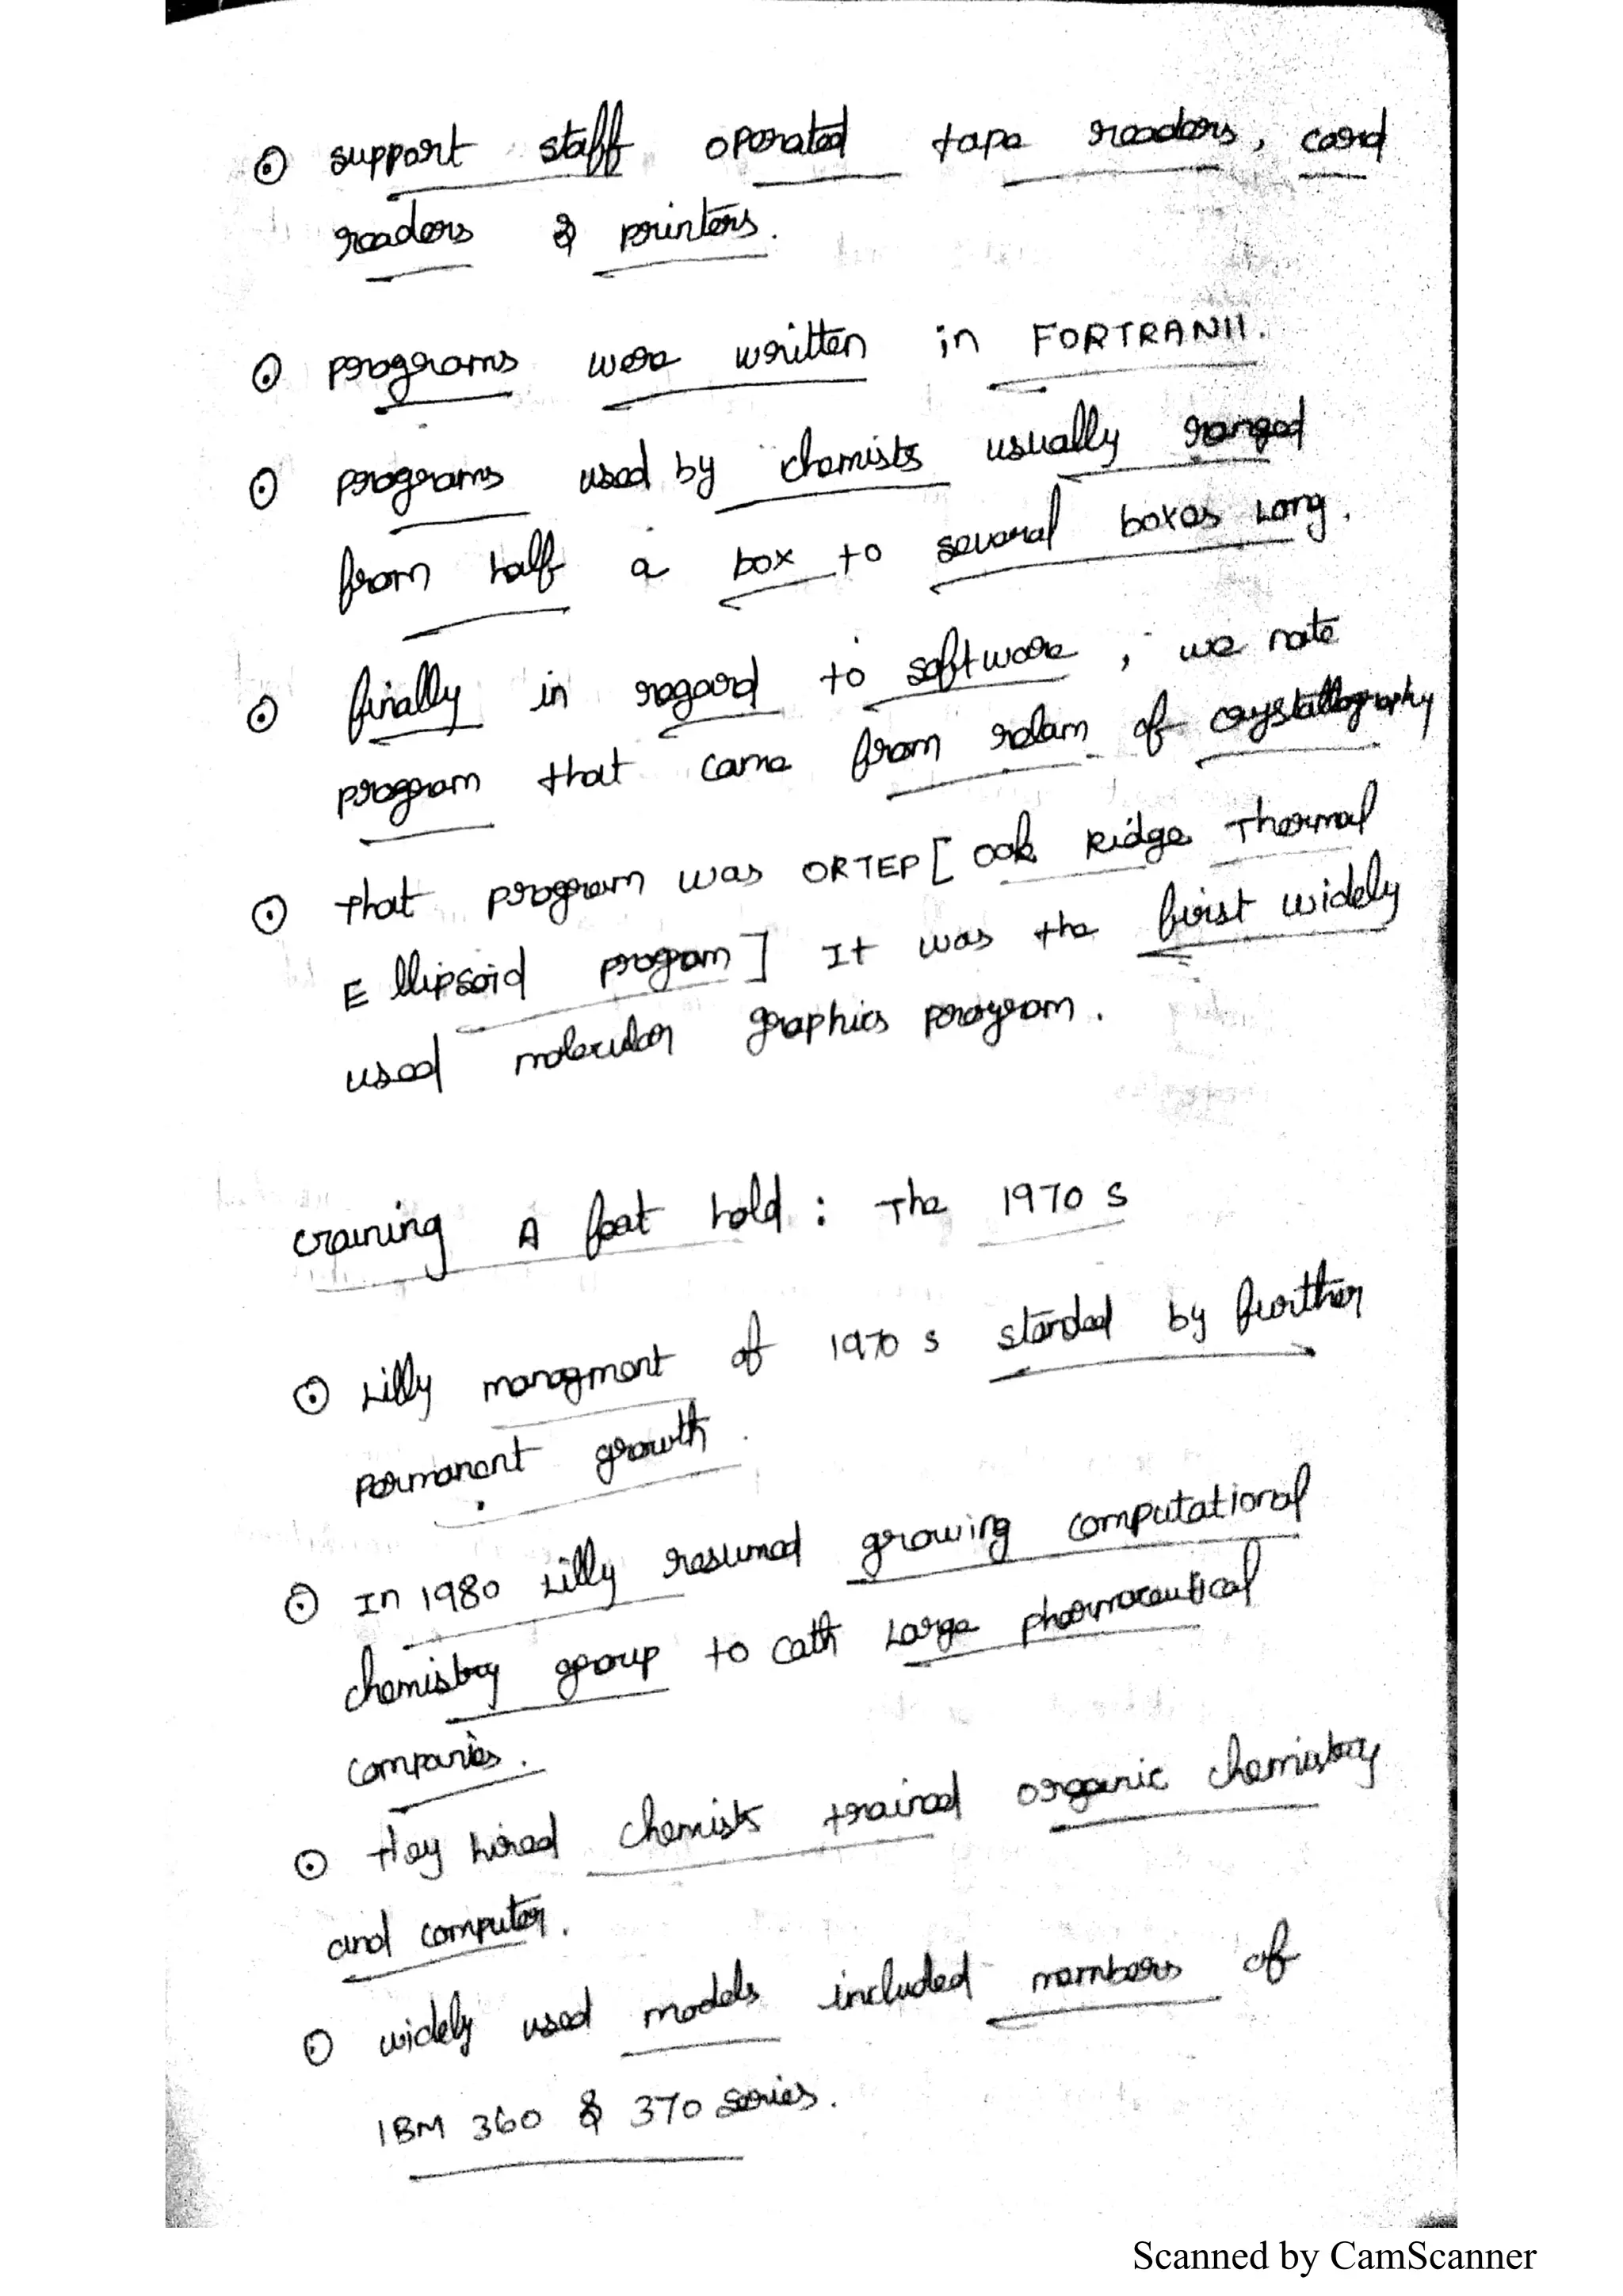 ⊙ support staff operated tape readers, card
readers & printers.
⊙ programs were written in FORTRAN II.
⊙ programs used by chemists usually ranged
from half a box to several boxes Long.
⊙ finally in regard to software, we note
program that came from relam of crystallography
⊙ That program was ORTEP [ Oak Ridge Thermal
Ellipsoid program ] It was the first widely
used molecular graphics program.
Graining A foot hold : The 1970 s
⊙ Lilly managment of 1970 s standed by further
permanent growth.
⊙ In 1980 Lilly resumed growing computational
chemistry group to cath Large pharmaceutical
companies.
⊙ They hired chemists trained organic chemistry
and computer.
⊙ widely used models included members of
IBM 360 & 370 series.
Scanned by CamScanner